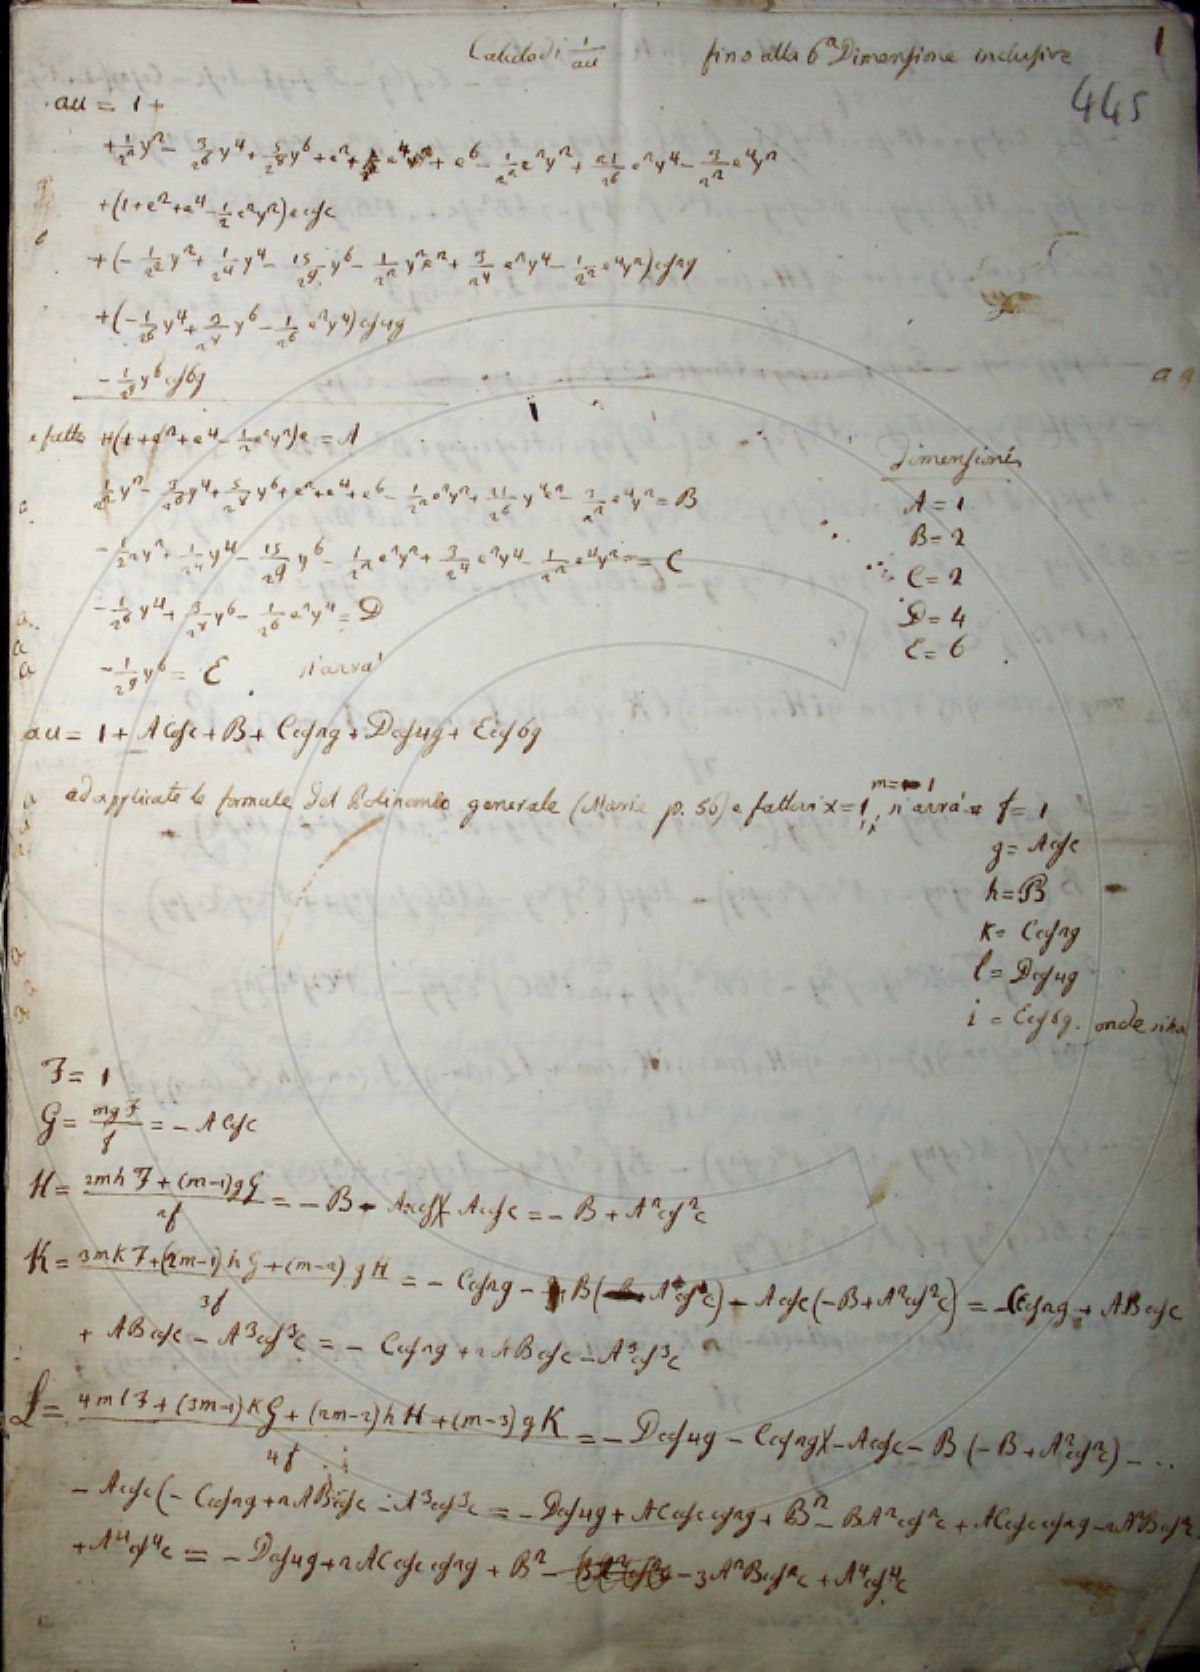 Calcolo di 1/au fino alla 6ª Dimensione inclusive
1
445
au = 1 +
+ 1/2² y² − 3/2⁶ y⁴ + 5/2⁸ y⁶ + e² + e⁴ + e⁶ − 1/2² e²y² + 21/2⁶ e²y⁴ − 3/2² e⁴y²
+ (1 + e² + e⁴ − 1/2 e²y²) e cos c
+ (− 1/2² y² + 1/2⁴ y⁴ − 15/2⁹ y⁶ − 1/2² y²e² + 3/2⁴ e²y⁴ − 1/2² e⁴y²) cos 2g
+ (− 1/2⁶ y⁴ + 3/2⁸ y⁶ − 1/2⁶ e²y⁴) cos 4g
− 1/2⁹ y⁶ cos 6g
e fatto + (1 + e² + e⁴ − 1/2 e²y²) e = A
Dimensioni
1/2² y² − 3/2⁶ y⁴ + 5/2⁸ y⁶ + e² + e⁴ + e⁶ − 1/2² e²y² + 21/2⁶ y⁴e² − 3/2² e⁴y² = B
A = 1
B = 2
− 1/2² y² + 1/2⁴ y⁴ − 15/2⁹ y⁶ − 1/2² e²y² + 3/2⁴ e²y⁴ − 1/2² e⁴y² = C
C = 2
− 1/2⁶ y⁴ + 3/2⁸ y⁶ − 1/2⁶ e²y⁴ = D
D = 4
− 1/2⁹ y⁶ = E si avrà
E = 6
au = 1 + A cos c + B + C cos 2g + D cos 4g + E cos 6g
ed applicate le formule del Polinomio generale (Marie p. 56) e fattovi x = 1, m = − 1 si avrà f = 1
g = A cos c
h = B
k = C cos 2g
l = D cos 4g
i = E cos 6g. onde si ha
F = 1
G = mgF/f = − A cos c
H = 2mhF + (m−1)gG / 2f = − B − A cos c × − A cos c = − B + A² cos² c
K = 3mkF + (2m−1)hG + (m−2)gH / 3f = − C cos 2g − B ( − A cos c) − A cos c (− B + A² cos² c) = − C cos 2g + AB cos c
+ AB cos c − A³ cos³ c = − C cos 2g + 2AB cos c − A³ cos³ c
L = 4mlF + (3m−1)kG + (2m−2)hH + (m−3)gK / 4f = − D cos 4g − C cos 2g × − A cos c − B (− B + A² cos² c) − ...
− A cos c (− C cos 2g + 2AB cos c − A³ cos³ c = − D cos 4g + AC cos c cos 2g + B² − BA² cos² c + AC cos c cos 2g − 2A²B cos² c
+ A⁴ cos⁴ c = − D cos 4g + 2AC cos c cos 2g + B² − 3A²B cos² c + A⁴ cos⁴ c